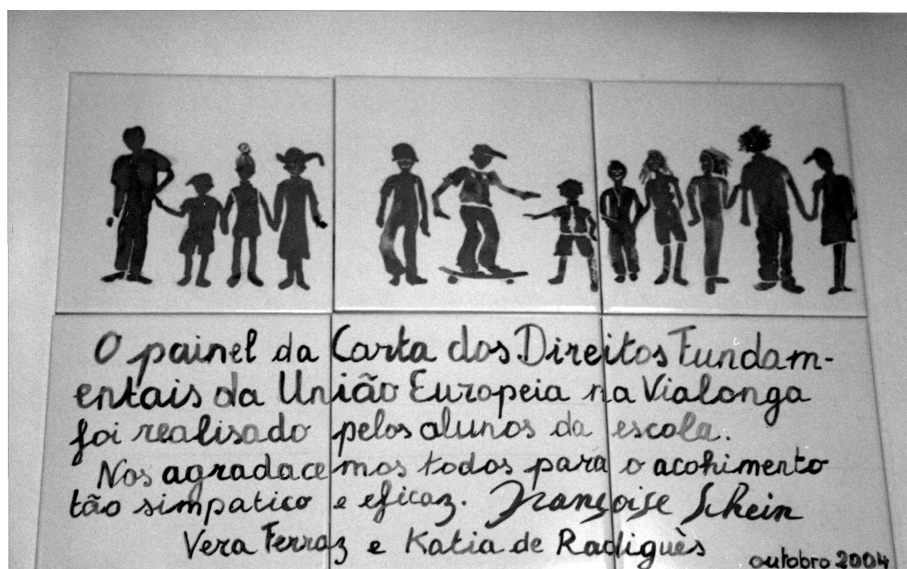 O painel da Carta dos Direitos Fundam-
entais da União Europeia na Vialonga
foi realisado pelos alunos da escola.
Nos agradacemos todos para o acohimento
tão simpatico e eficaz. Françoise Schein
Vera Ferraz e Katia de Radiguès
outobro 2004